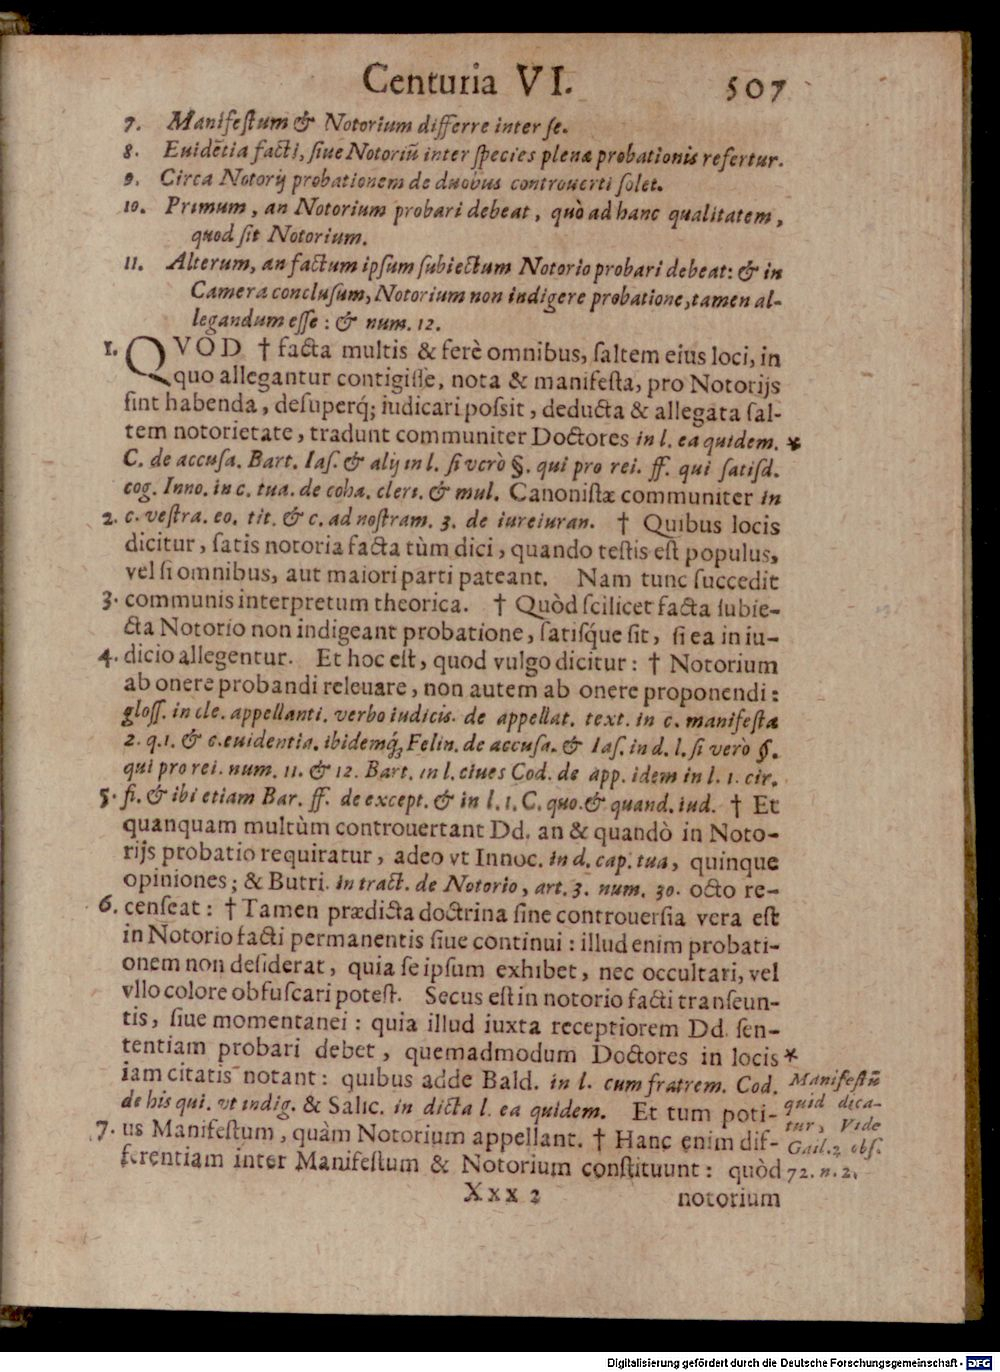 Centuria VI. 507
7. Manifeſtum & Notorium differre inter ſe.
8. Euidẽtia facti, ſiue Notoriũ inter ſpecies plenæ probationis refertur.
9. Circa Notorij probationem de duobus controuerti ſolet.
10. Primum, an Notorium probari debeat, quò ad hanc qualitatem,
quod ſit Notorium.
11. Alterum, an factum ipſum ſubiectum Notorio probari debeat: & in
Camera concluſum, Notorium non indigere probatione, tamen al-
legandum eſſe: & num. 12.
1. QVOD † facta multis & ferè omnibus, ſaltem eius loci, in
quo allegantur contigiſſe, nota & manifeſta, pro Notorijs
ſint habenda, deſuperq́; iudicari poſsit, deducta & allegata ſal-
tem notorietate, tradunt communiter Doctores in l. ea quidem. *
C. de accuſa. Bart. Iaſ. & alij in l. ſi verò §. qui pro rei. ff. qui ſatiſd.
cog. Inno. in c. tua. de coha. cleri. & mul. Canoniſtæ communiter in
2. c. veſtra. eo. tit. & c. ad noſtram. 3. de iureiuran. † Quibus locis
dicitur, ſatis notoria facta tùm dici, quando teſtis eſt populus,
vel ſi omnibus, aut maiori parti pateant. Nam tunc ſuccedit
3. communis interpretum theorica. † Quòd ſcilicet facta ſubie-
cta Notorio non indigeant probatione, ſatiſq́ue ſit, ſi ea in iu-
4. dicio allegentur. Et hoc eſt, quod vulgo dicitur: † Notorium
ab onere probandi releuare, non autem ab onere proponendi:
gloſſ. in cle. appellanti. verbo iudicis. de appellat. text. in c. manifeſta
2. q.1. & c. euidentia. ibidemq́; Felin. de accuſa. & Iaſ. in d. l. ſi verò §.
qui pro rei. num. 11. & 12. Bart. in l. ciues Cod. de app. idem in l. 1. cir.
5. fi. & ibi etiam Bar. ff. de except. & in l. 1. C. quo. & quand. iud. † Et
quanquam multùm controuertant Dd. an & quandò in Noto-
rijs probatio requiratur, adeo vt Innoc. in d. cap. tua, quinque
opiniones; & Butri. in tract. de Notorio, art. 3. num. 30. octo re-
6. cenſeat: † Tamen prædicta doctrina ſine controuerſia vera eſt
in Notorio facti permanentis ſiue continui: illud enim probati-
onem non deſiderat, quia ſe ipſum exhibet, nec occultari, vel
vllo colore obfuſcari poteſt. Secus eſt in notorio facti tranſeun-
tis, ſiue momentanei: quia illud iuxta receptiorem Dd. ſen-
tentiam probari debet, quemadmodum Doctores in locis *
iam citatis notant: quibus adde Bald. in l. cum fratrem. Cod.
de his qui. vt indig. & Salic. in dicta l. ea quidem. Et tum poti-
7. us Manifeſtum, quàm Notorium appellant. † Hanc enim dif-
ferentiam inter Manifeſtum & Notorium conſtituunt: quòd
Manifeſtũ
quid dica-
tur, Vide
Gail. 2. obſ.
72. n. 2.
Xxx 2 notorium
Digitalisierung gefördert durch die Deutsche Forschungsgemeinschaft - DFG